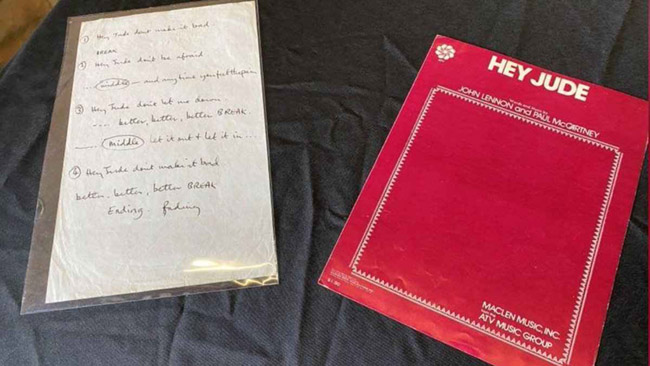 ① Hey Jude don't make it bad.
BREAK
② Hey Jude don't be afraid
...... middle — and anytime you feel the pain
③ Hey Jude don't let me down
.... better, better, better BREAK.
...... middle let it out & let it in ....
④ Hey Jude don't make it bad
better, better, better BREAK
Ending fading
HEY JUDE
JOHN LENNON and PAUL McCARTNEY
MACLEN MUSIC, INC.
ATV MUSIC GROUP